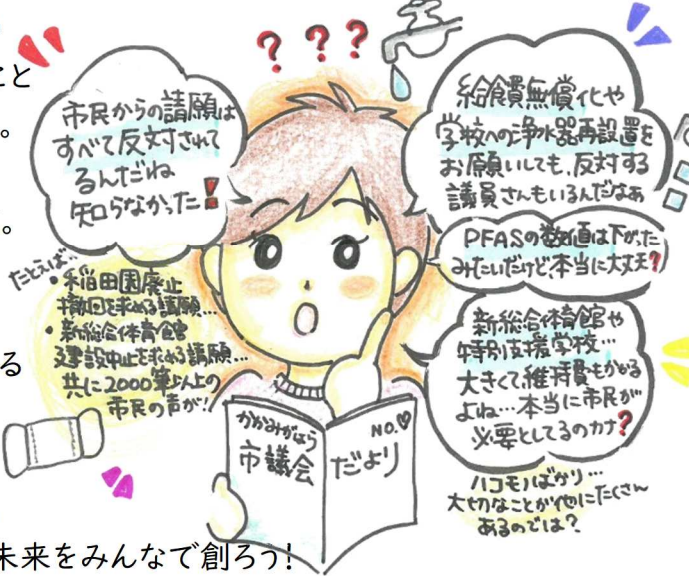 こと
。
。
る
???
市民からの請願は
すべて反対されて
るんだね
知らなかった!
たとえば…
・稲田園廃止
撤回を求める請願…
・新総合体育館
建設中止を求める請願…
共に2000筆以上の
市民の声が!
給食費無償化や
学校への浄水器再設置を
お願いしても、反対する
議員さんもいるんだなぁ
PFASの数値は下がった
みたいだけど、本当に大丈夫?
新総合体育館や
特別支援学校…
大きくて維持費もかかる
よね…本当に市民が
必要としてるのカナ?
ハコモノばかり…
大切なことが他にたくさん
あるのでは?
かかみがはら
市議会
NO.♡
だより
未来をみんなで創ろう!